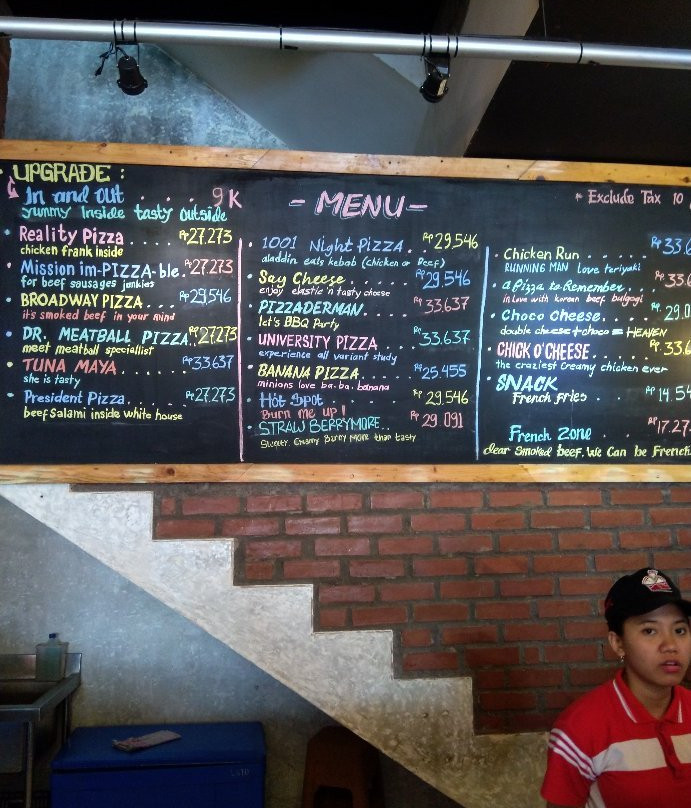 UPGRADE :
In and out . . . . . 9K
Yummy Inside tasty Outside
Reality Pizza . . . . Rp27.273
chicken frank inside
Mission im-PIZZA-ble. Rp27.273
for beef sausages junkies
BROADWAY PIZZA . . . . Rp29,546
it's smoked beef in your mind
DR. MEATBALL PIZZA. Rp27273
meet meatball speciallist
TUNA MAYA . . . . Rp33,637
she is tasty
President Pizza . . . . Rp27.273
beef Salami inside white house
- MENU -
1001 Night Pizza . . Rp29,546
aladdin eats kebab (chicken or Beef)
Say Cheese . . . . . Rp29,546
enjoy elastic n tasty cheese
PIZZADERMAN. . . . . Rp33,637
let's BBQ Party
UNIVERSITY PIZZA . . . Rp33,637
experience all variant study
BANANA PIZZA . . . . . Rp25,455
minions love ba-ba. banana
Hot Spot . . . . . Rp29,546
Burn me up!
STRAW BERRYMORE . . Rp29 091
Sweet Creamy Berry MORE than tasty
* Exclude Tax 10
Chicken Run . . . . . Rp33.6
RUNNING MAN love teriyaki
a Pizza to Remember . . . Rp33.6
in Love with korean beef bulgogi
Choco Cheese . . . . Rp29.0
double cheese + choco = HEAVEN
CHICK O'CHEESE . . . . Rp33.6
the craziest creamy chicken ever
SNACK
French fries . . . . Rp14.54
French Zone . . . . Rp17.27
dear Smoked beef. We Can be French